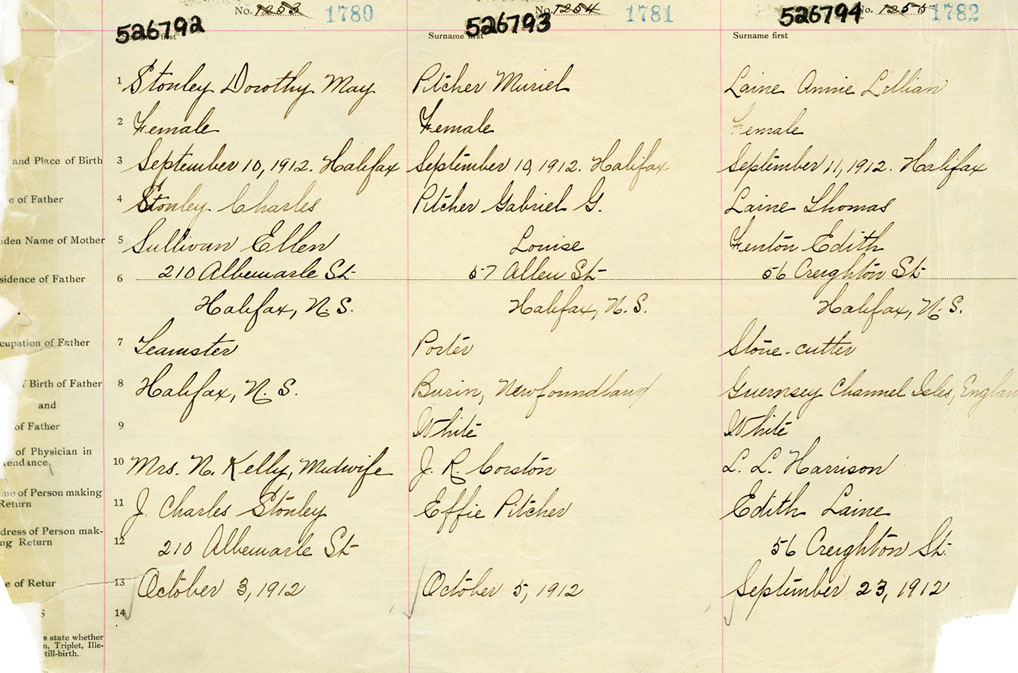 No. 1253 1780 No. 1254 1781 No. 1255 1782
526792 526793 526794
first Surname first Surname first
1 Stonley Dorothy May Pitcher Muriel Laine Annie Lillian
2 Female Female Female
and Place of Birth 3 September 10, 1912. Halifax September 10, 1912. Halifax September 11, 1912. Halifax
e of Father 4 Stonley Charles Pitcher Gabriel G. Laine Thomas
iden Name of Mother 5 Sullivan Ellen Louise Fenton Edith
sidence of Father 6 210 Albemarle St. 57 Allen St. 56 Creighton St.
Halifax, N.S. Halifax, N.S. Halifax, N.S.
cupation of Father 7 Teamster Porter Stone-cutter
Birth of Father 8 Halifax, N.S. Burin, Newfoundland Guernsey Channel Isles, Englan
and
of Father 9 White White
of Physician in
tendance 10 Mrs. N. Kelly, Midwife J. R. Corston L. L. Harrison
me of Person making
Return 11 J. Charles Stonley Effie Pitcher Edith Laine
dress of Person mak-
ng Return 12 210 Albemarle St. 56 Creighton St.
e of Retur 13 October 3, 1912 October 5, 1912 September 23, 1912
s 14
s state whether
n, Triplet, Ille-
till-birth.